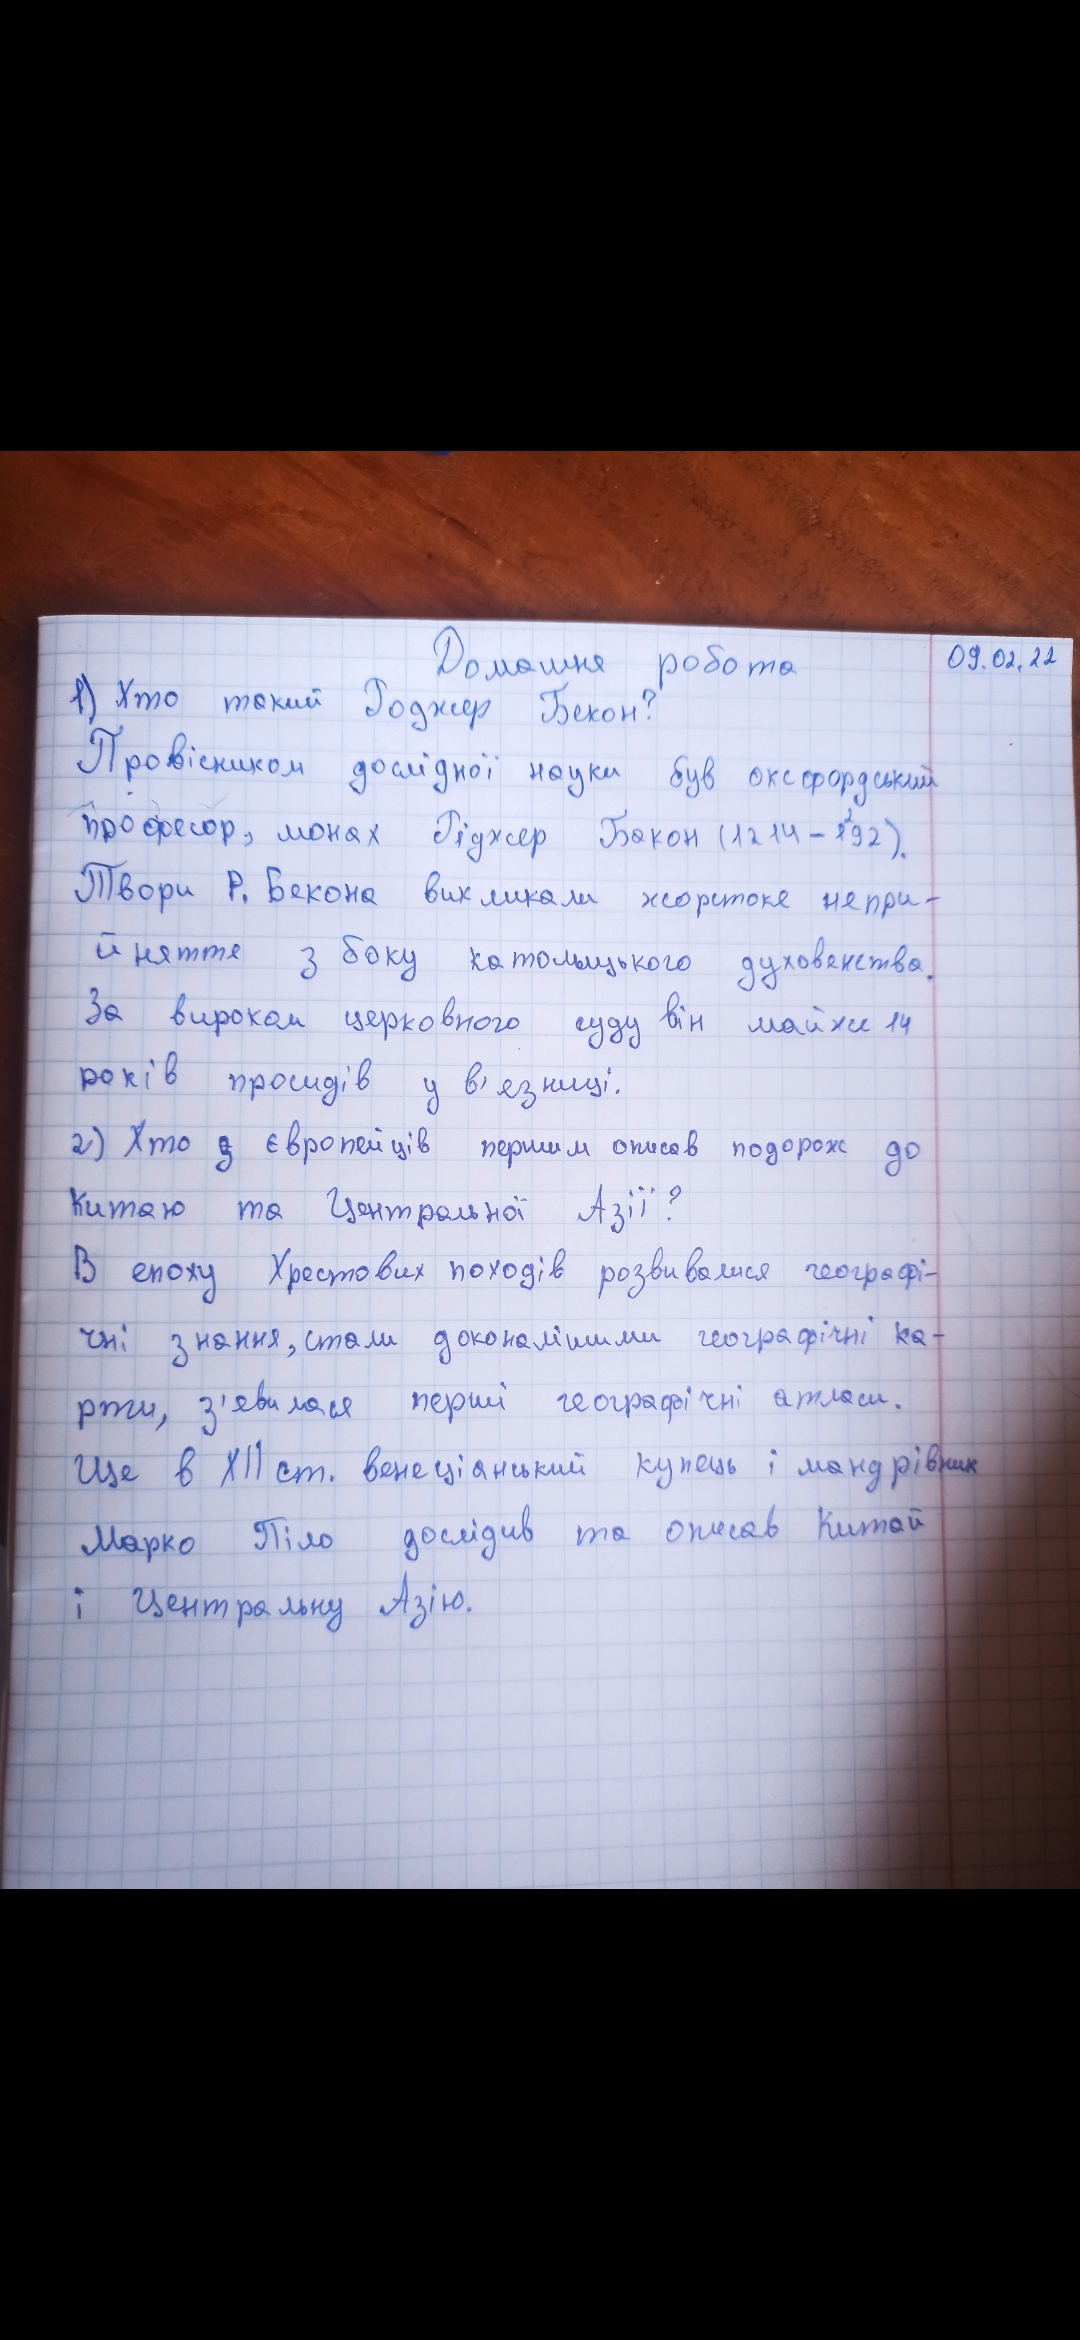 Домашня робота 09.02.22
1) Хто такий Годжер Бекон?
Провісником дослідної науки був оксфордський
професор, монах Гіджер Бакон (1214-1292).
Твори Р. Бекона викликали жорстоке непри-
йняття з боку католицького духовенства.
За вироком церковного суду він майже 14
років просидів у в'язниці.
2) Хто з європейців першим описав подорож до
Китаю та Центральної Азії?
В епоху Хрестових походів розвивалися географі-
чні знання, стали доконалішими географічні ка-
рти, з'явилася перші географічні атласи.
Ще в XII ст. венеціанський купець і мандрівник
Марко Піло дослідив та описав Китай
і Центральну Азію.